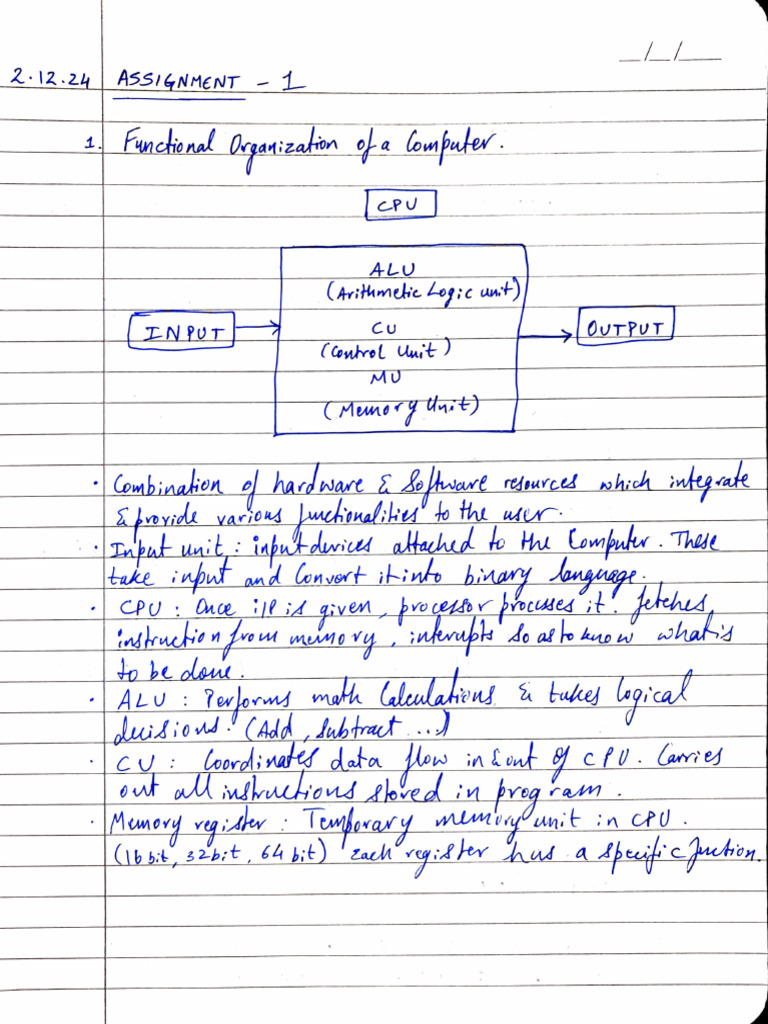 __/__/____
2.12.24 ASSIGNMENT - 1
1. Functional Organization of a Computer.
CPU
ALU
(Arithmetic Logic unit)
INPUT
CU
OUTPUT
(Control Unit)
MU
(Memory Unit)
· Combination of hardware & Software resources which integrate
& provide various functionalities to the user.
· Input unit : input devices attached to the Computer. These
take input and Convert it into binary language.
· CPU : Once i/p is given, processor processes it. fetches
instruction from memory, interupts so as to know what is
to be done.
· ALU : Performs math Calculations & takes logical
decisions. (Add, Subtract ...)
· CU : Coordinates data flow in & out of CPU. Carries
out all instructions stored in program.
· Memory register : Temporary memory unit in CPU.
(16 bit, 32 bit, 64 bit) Each register has a specific function.